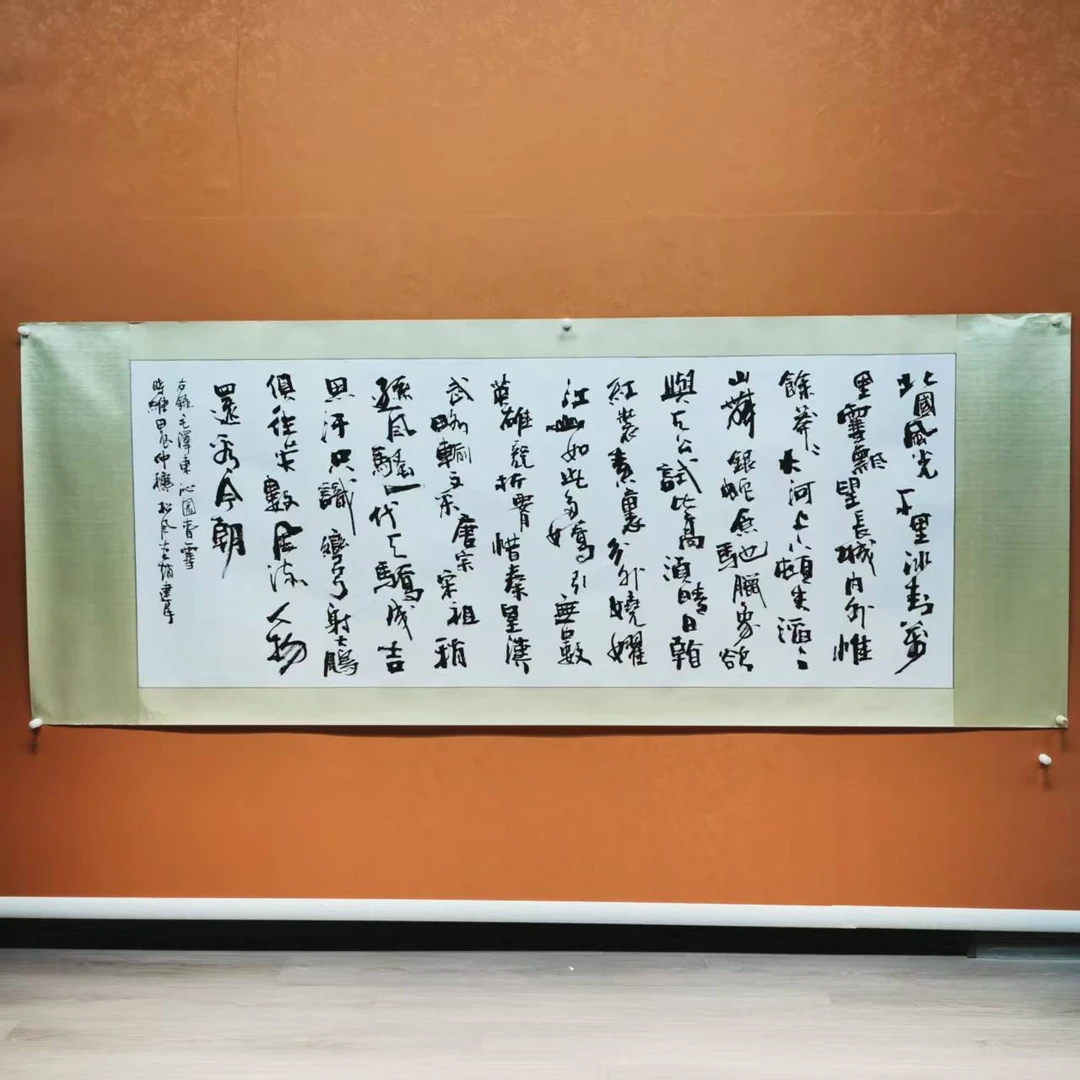 北國風光千里冰封萬
里雪飄望長城內外惟
餘莽〻大河上下頓失滔〻
山舞銀蛇原馳臘象欲
與天公試比高須晴日看
紅裝素裹分外嬈
江山如此多嬌引無數
英雄競折腰惜秦皇漢
武略輸文采唐宗宋祖稍
遜風騷一代天驕成吉
思汗只識彎弓射大鵰
俱往矣數風流人物
還看今朝
右錄毛澤東沁園春雪
時維甲辰仲穗